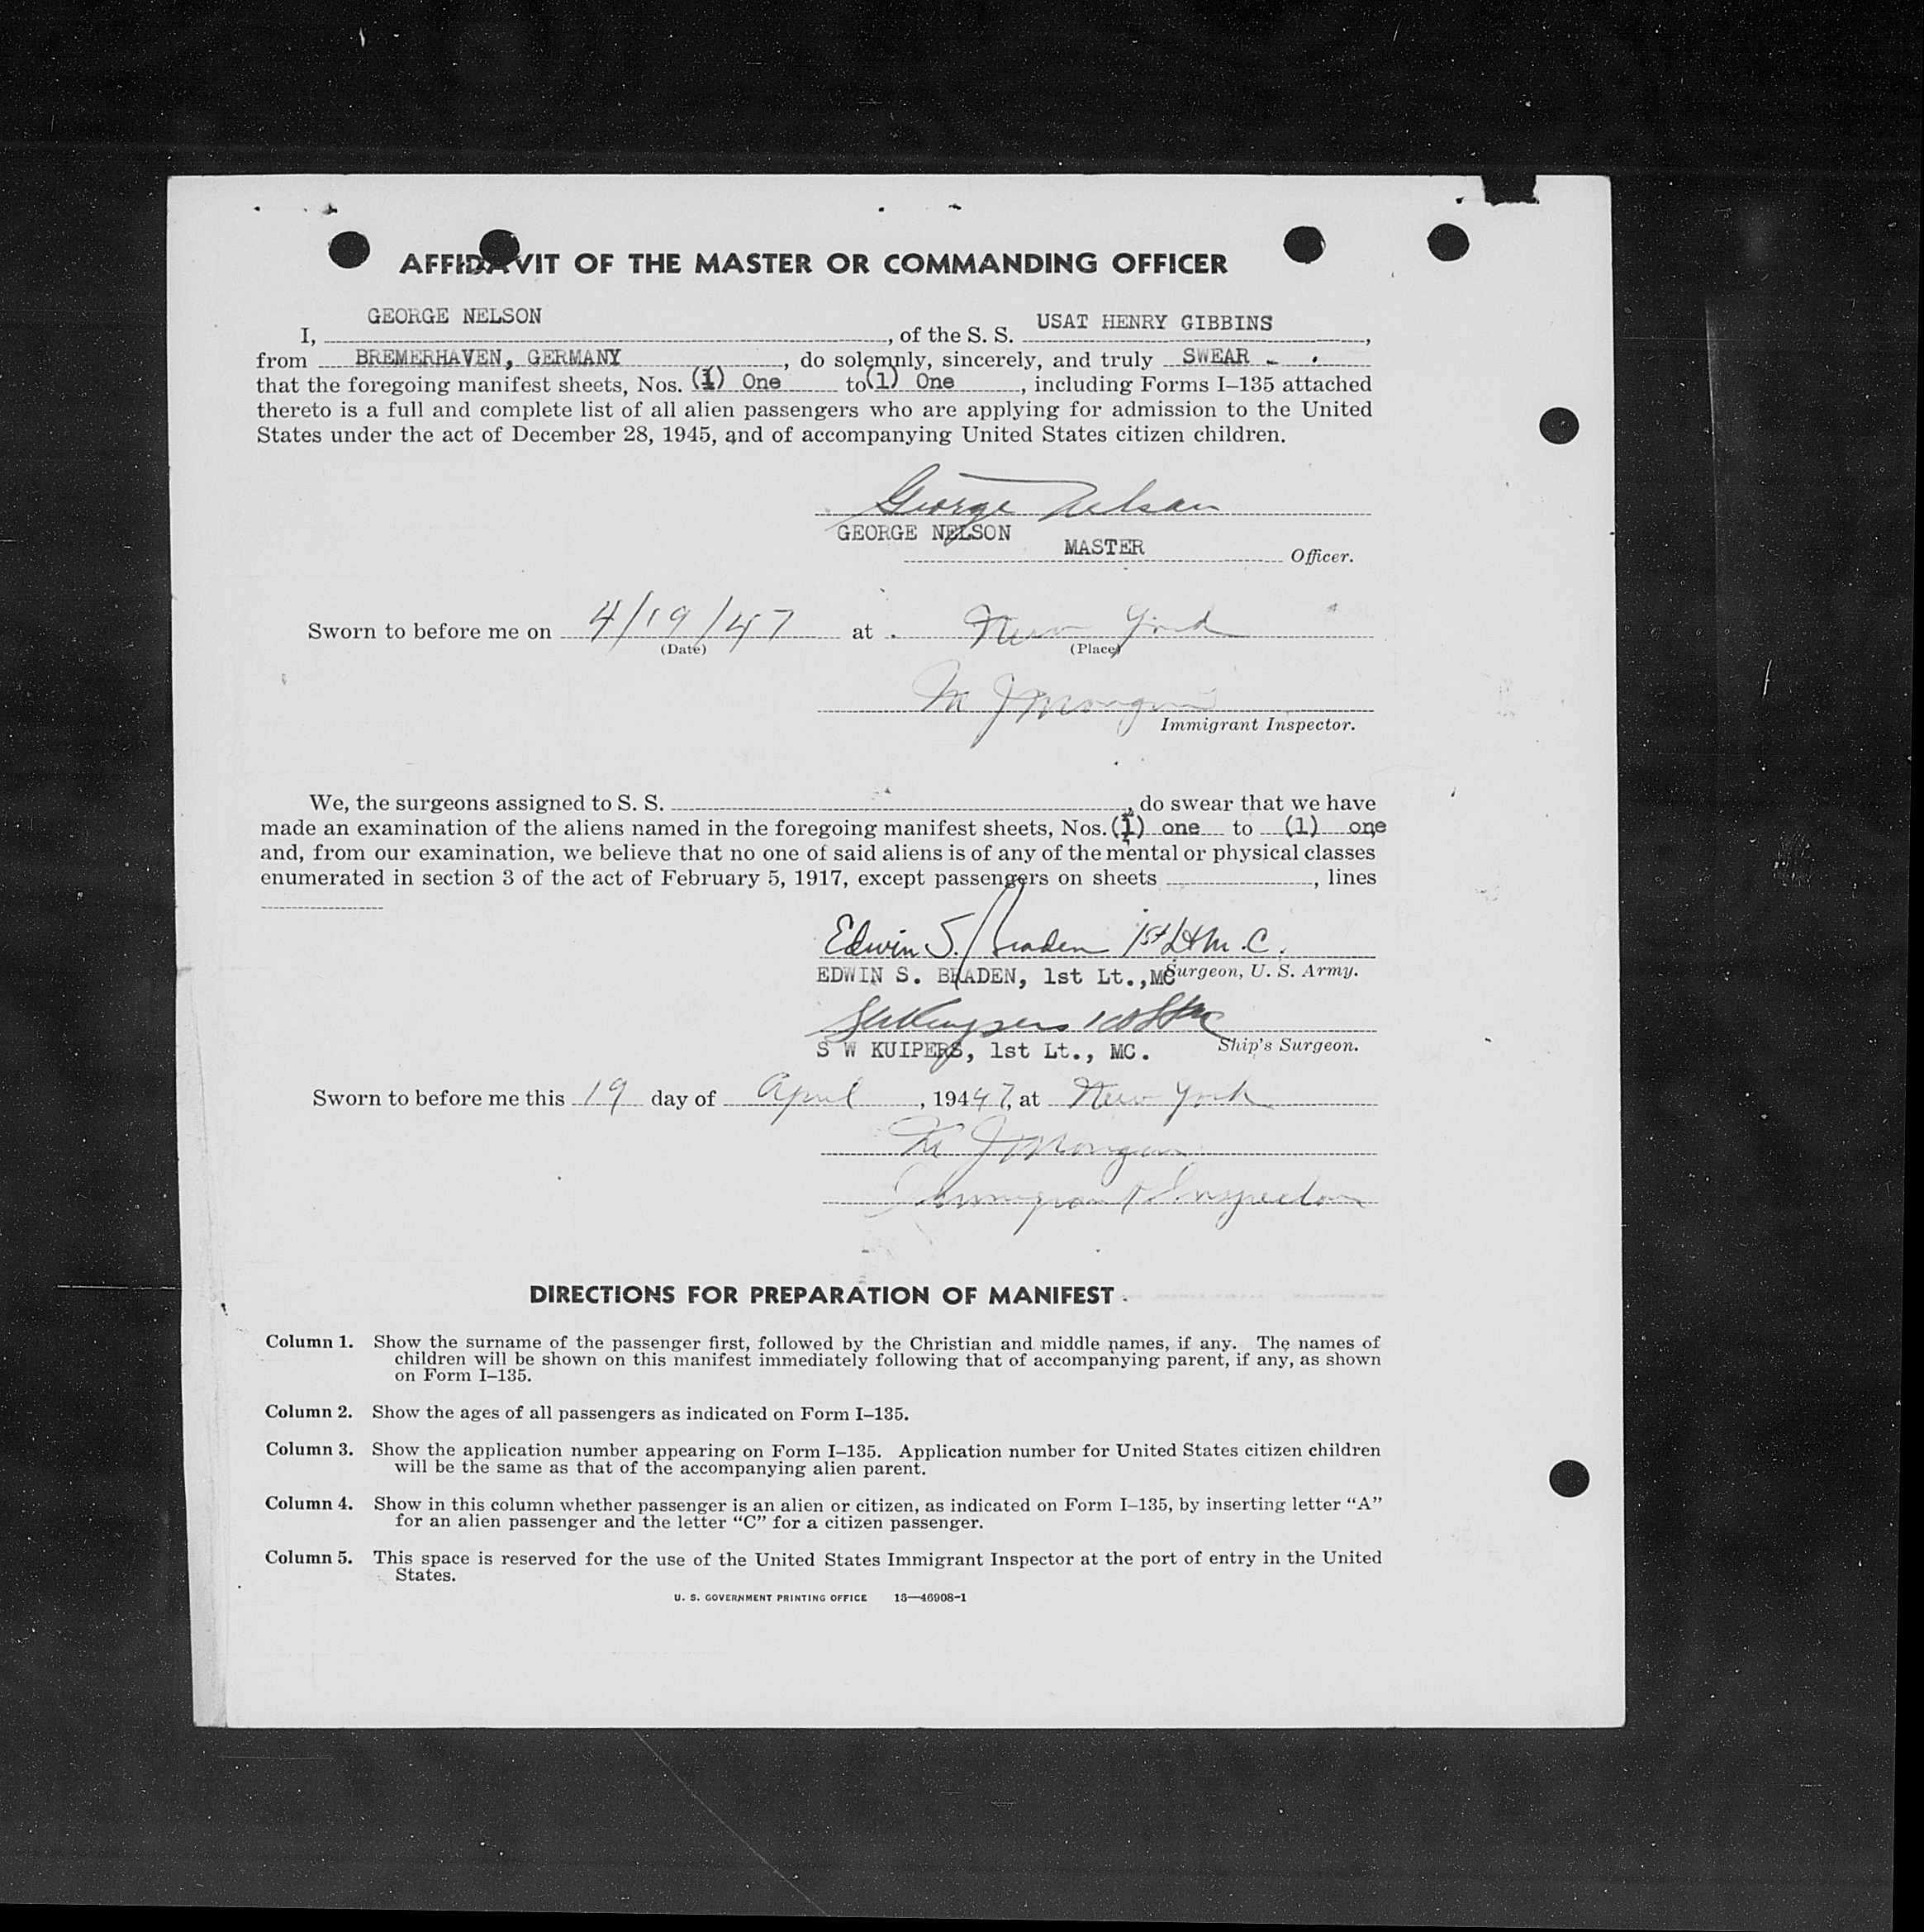 AFFIDAVIT OF THE MASTER OR COMMANDING OFFICER
I, GEORGE NELSON, of the S. S. USAT HENRY GIBBINS,
from BREMERHAVEN, GERMANY, do solemnly, sincerely, and truly SWEAR - .
that the foregoing manifest sheets, Nos. (1) One to (1) One, including Forms I–135 attached
thereto is a full and complete list of all alien passengers who are applying for admission to the United
States under the act of December 28, 1945, and of accompanying United States citizen children.
George Nelson
GEORGE NELSON
MASTER Officer.
Sworn to before me on 4/19/47 at New York
(Date) (Place)
M J
Immigrant Inspector.
We, the surgeons assigned to S. S. , do swear that we have
made an examination of the aliens named in the foregoing manifest sheets, Nos. (1) one to (1) one
and, from our examination, we believe that no one of said aliens is of any of the mental or physical classes
enumerated in section 3 of the act of February 5, 1917, except passengers on sheets , lines
Edwin S. Braden 1st Lt M.C.
EDWIN S. BRADEN, 1st Lt.,MC Surgeon, U. S. Army.
SW Kuipers 1st Lt MC
S W KUIPERS, 1st Lt., MC. Ship's Surgeon.
Sworn to before me this 19 day of April, 19447, at New York
M J
Immigrant Inspector
DIRECTIONS FOR PREPARATION OF MANIFEST
Column 1. Show the surname of the passenger first, followed by the Christian and middle names, if any. The names of
children will be shown on this manifest immediately following that of accompanying parent, if any, as shown
on Form I–135.
Column 2. Show the ages of all passengers as indicated on Form I–135.
Column 3. Show the application number appearing on Form I–135. Application number for United States citizen children
will be the same as that of the accompanying alien parent.
Column 4. Show in this column whether passenger is an alien or citizen, as indicated on Form I–135, by inserting letter “A”
for an alien passenger and the letter “C” for a citizen passenger.
Column 5. This space is reserved for the use of the United States Immigrant Inspector at the port of entry in the United
States.
U. S. GOVERNMENT PRINTING OFFICE 16—46908-1